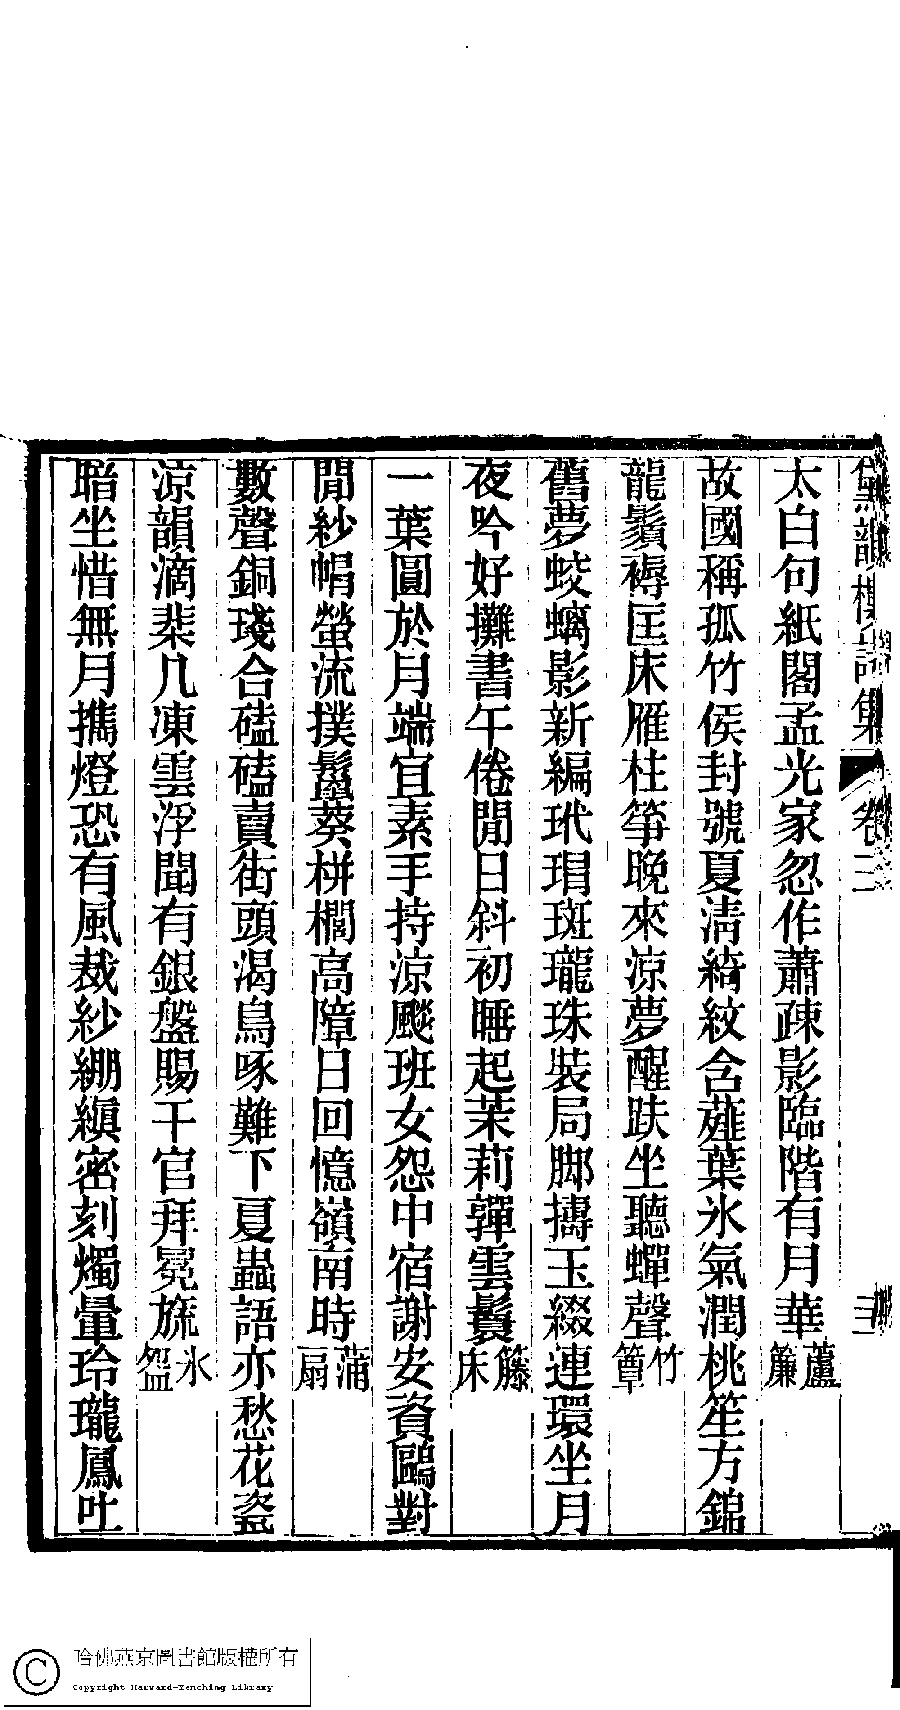 黛韻樓詩集 卷三 三
太白句紙閣孟光家忽作蕭疎影臨階有月華蘆簾
故國稱孤竹侯封號夏清綺紋含薤葉氷氣潤桃笙方錦
龍鬚褥匡床雁柱筝晚來涼夢醒趺坐聽蟬聲竹簟
舊夢蛟螭影新編玳瑁斑瓏珠裝局脚擣玉綴連環坐月
夜吟好攤書午倦閒日斜初睡起茉莉嚲雲鬟籐床
一葉圓於月端宜素手持涼颸班女怨中宿謝安資鷗對
閒紗帽螢流撲鬢葵栟櫚高障日回憶嶺南時蒲扇
數聲銅琖合磕磕賣街頭渴鳥啄難下夏蟲語亦愁花瓷
涼韻滴棐几凍雲浮聞有銀盤賜千官拜冕旒氷盌
暗坐惜無月攜燈恐有風裁紗綳縝密刻燭暈玲瓏鳳吐
哈佛燕京圖書館版權所有
© Copyright Harvard-Yenching Library